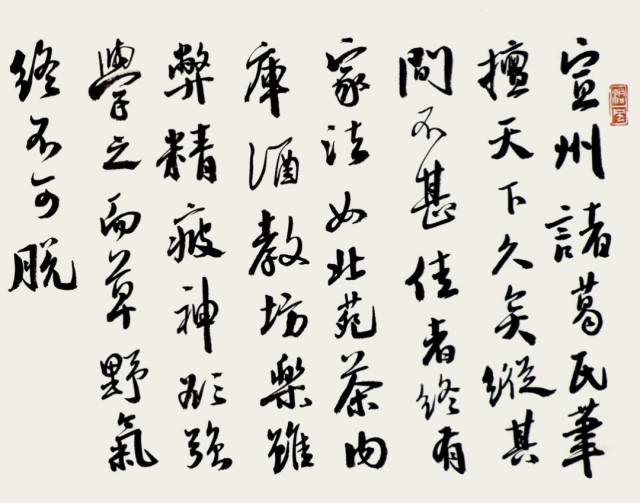 宣州諸葛氏筆
擅天下久矣縱其
間不甚佳者終有
家法如北苑茶内
庫酒教坊樂雖
弊精疲神欲強
學之而草野氣
終不可脫